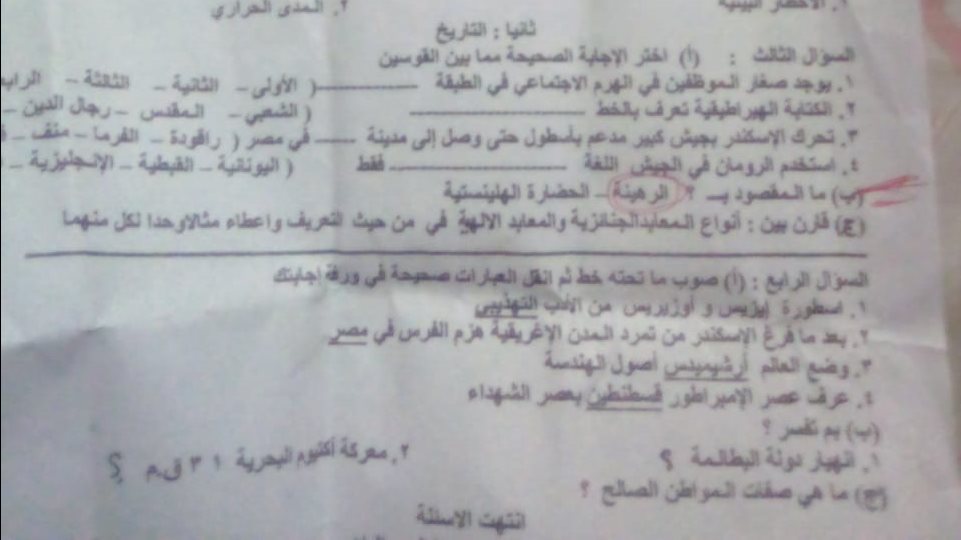 ١. الأخطار البيئية ٢. المدى الحراري
ثانيا : التاريخ
السؤال الثالث : (أ) اختر الإجابة الصحيحة مما بين القوسين
١. يوجد صغار الموظفين في الهرم الاجتماعي في الطبقة ---------- ( الأولى – الثانية – الثالثة – الرابع
٢. الكتابة الهيراطيقية تعرف بالخط ---------- ( الشعبي – المقدس – رجال الدين –
٣. تحرك الإسكندر بجيش كبير مدعم بأسطول حتى وصل إلى مدينة ----- في مصر ( راقودة – الفرما – منف – ق
٤. استخدم الرومان في الجيش اللغة ---------- فقط ( اليونانية – القبطية – الإنجليزية –
(ب) ما المقصود بـ ؟ الرهينة – الحضارة الهلينستية
(ج) قارن بين : أنواع المعابدالجنائزية والمعابد الالهة في من حيث التعريف واعطاء مثالاوحدا لكل منهما
السؤال الرابع : (أ) صوب ما تحته خط ثم انقل العبارات صحيحة في ورقة إجابتك
١. اسطورة إيزيس و أوزيريس من الأدب التهذيبي
٢. بعد ما فرغ الإسكندر من تمرد المدن الإغريقية هزم الفرس في مصر
٣. وضع العالم أرشيميدس أصول الهندسة
٤. عرف عصر الإمبراطور قسطنطين بعصر الشهداء
(ب) بم تفسر ؟
١. انهيار دولة البطالمة ؟ ٢. معركة أكتيوم البحرية ٣١ ق.م ؟
(ج) ما هي صفات المواطن الصالح ؟
انتهت الاسئلة